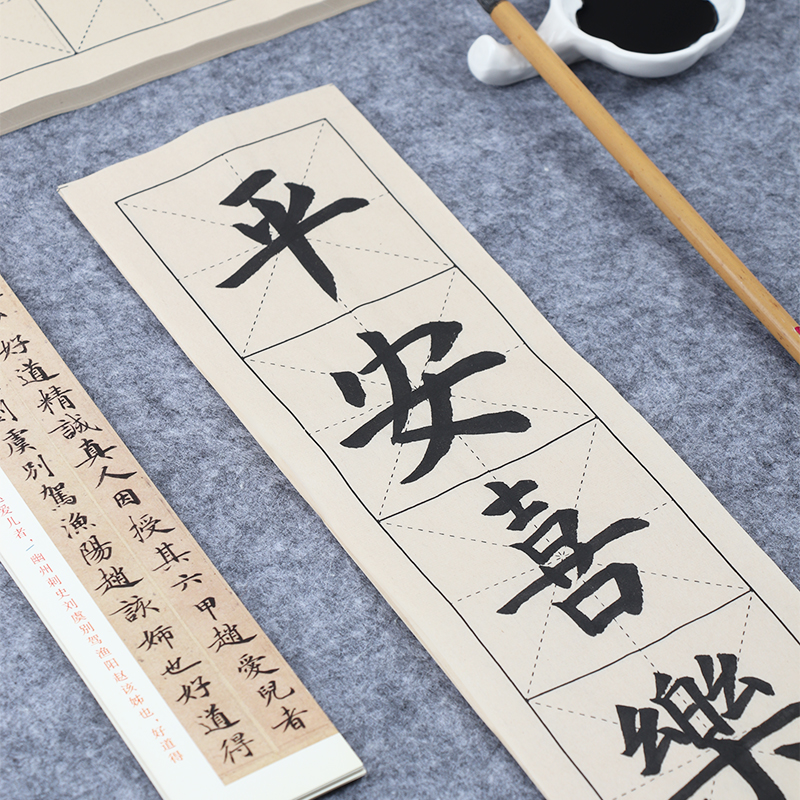 平安喜樂
好道精誠真人因授其六甲趙愛兒者
虞別駕漁陽趙該姊也好道得
爱儿者，幽州刺史刘虞别驾渔阳赵该姊也，好道得